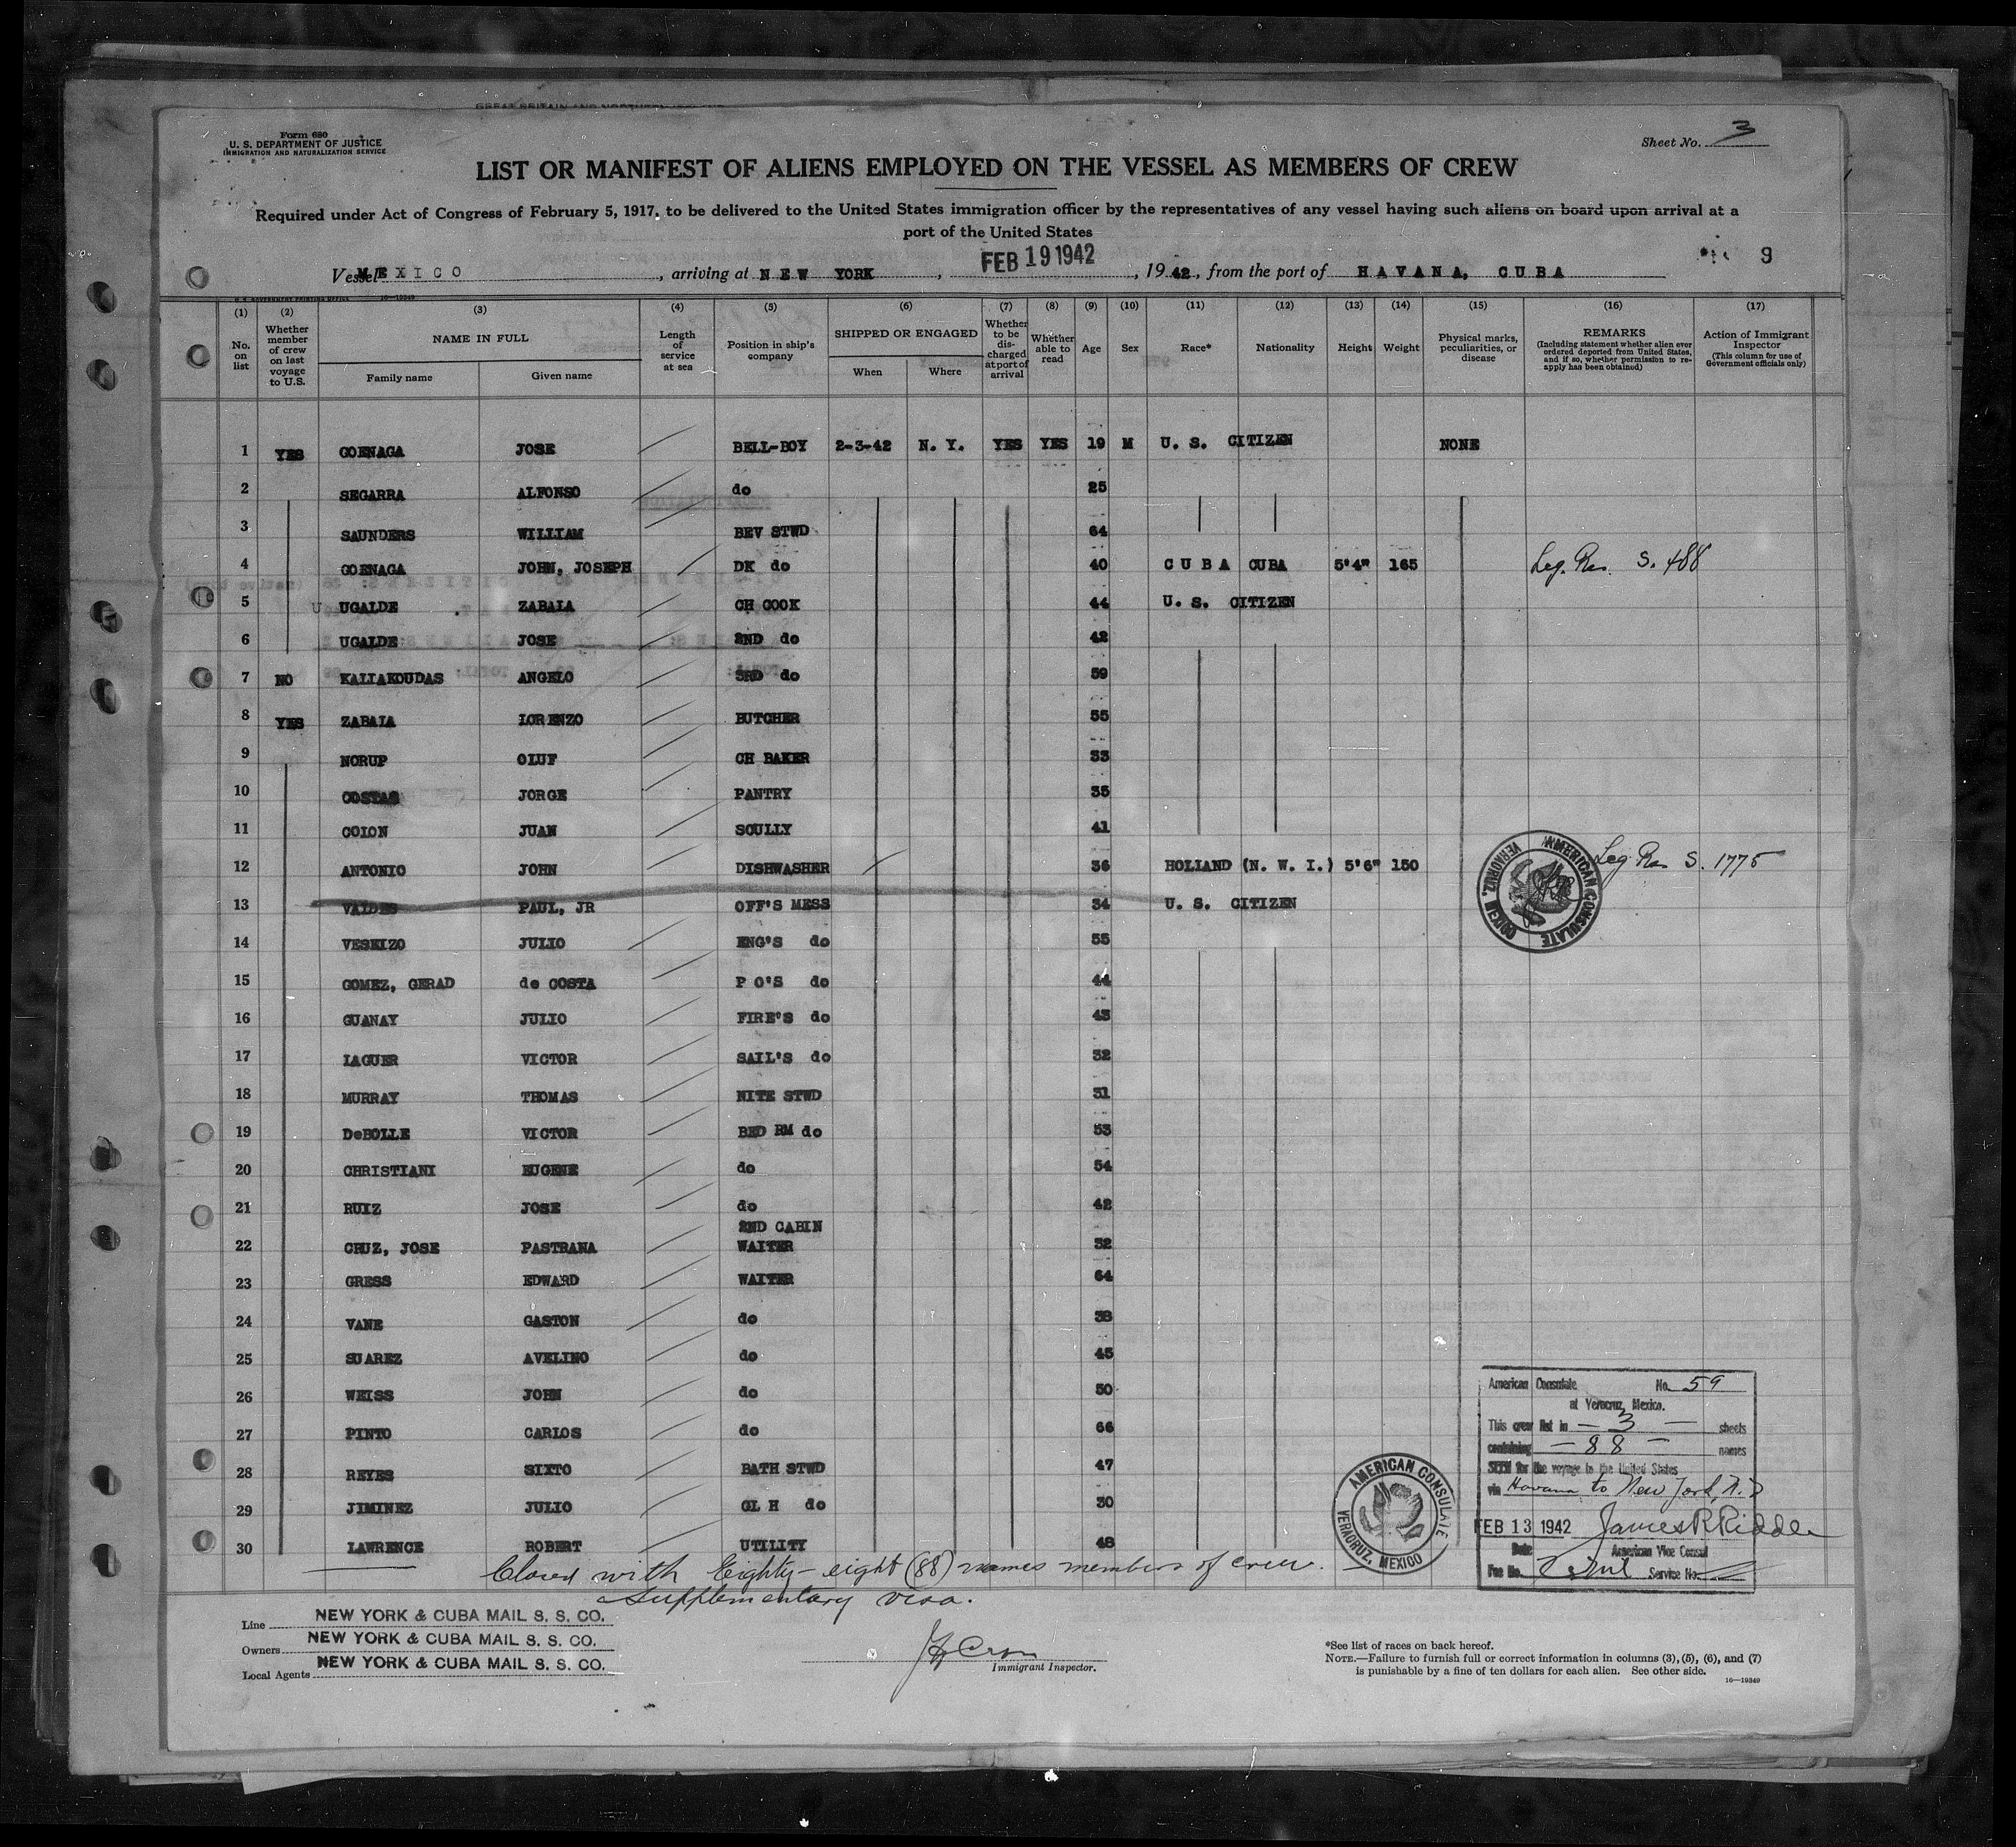 Form 680
U. S. DEPARTMENT OF JUSTICE
IMMIGRATION AND NATURALIZATION SERVICE
Sheet No. 3
LIST OR MANIFEST OF ALIENS EMPLOYED ON THE VESSEL AS MEMBERS OF CREW
Required under Act of Congress of February 5, 1917, to be delivered to the United States immigration officer by the representatives of any vessel having such aliens on board upon arrival at a
port of the United States
Vessel MEXICO, arriving at NEW YORK, FEB 19 1942, 1942, from the port of HAVANA, CUBA
9
U. S. GOVERNMENT PRINTING OFFICE 16—19349
(1) (2) (3) (4) (5) (6) (7) (8) (9) (10) (11) (12) (13) (14) (15) (16) (17)
No. on list
Whether member of crew on last voyage to U.S.
NAME IN FULL
Family name
Given name
Length of service at sea
Position in ship's company
SHIPPED OR ENGAGED
When
Where
Whether to be discharged at port of arrival
Whether able to read
Age
Sex
Race*
Nationality
Height
Weight
Physical marks, peculiarities, or disease
REMARKS
(Including statement whether alien ever ordered deported from United States, and if so, whether permission to reapply has been obtained)
Action of Immigrant Inspector
(This column for use of Government officials only)
1 YES GOENAGA JOSE BELL-BOY 2-3-42 N. Y. YES YES 19 M U. S. CITIZEN NONE
2 SEGARRA ALFONSO do 25
3 SAUNDERS WILLIAM BEV STWD 64
4 GOENAGA JOHN, JOSEPH DK do 40 CUBA CUBA 5'4" 165 Leg. Res. S. 488
5 U UGALDE ZABALA CH COOK 44 U. S. CITIZEN
6 UGALDE JOSE 2ND do 42
7 NO KALIAKOUDAS ANGELO 3RD do 59
8 YES ZABALA LORENZO BUTCHER 55
9 NORUP OLUF CH BAKER 33
10 COSTAS JORGE PANTRY 35
11 COLON JUAN SCULLY 41
12 ANTONIO JOHN DISHWASHER 36 HOLLAND (N. W. I.) 5'6" 150 Leg Res S. 1775
13 VALDES PAUL, JR OFF'S MESS 34 U. S. CITIZEN
14 VESKIZO JULIO ENG'S do 55
15 GOMEZ, GERAD de COSTA P O'S do 44
16 GUANAY JULIO FIRE'S do 43
17 LAGUER VICTOR SAIL'S do 32
18 MURRAY THOMAS NITE STWD 31
19 DeBOLLE VICTOR BED RM do 53
20 CHRISTIANI EUGENE do 54
21 RUIZ JOSE do 42
22 CRUZ, JOSE PASTRANA 2ND CABIN WAITER 32
23 GRESS EDWARD WAITER 64
24 VANE GASTON do 38
25 SUAREZ AVELINO do 45
26 WEISS JOHN do 50
27 PINTO CARLOS do 66
28 REYES SIXTO BATH STWD 47
29 JIMINEZ JULIO GL H do 30
30 LAWRENCE ROBERT UTILITY 48
AMERICAN CONSULATE
VERACRUZ, MEXICO
American Consulate No. 59
at Veracruz, Mexico.
This crew list in — 3 — sheets
containing — 88 — names
SEEN for the voyage to the United States
via Havana to New York, N.Y.
FEB 13 1942 James R Riddle
Date American Vice Consul
Fee No. Service No.
AMERICAN CONSULATE
VERACRUZ, MEXICO
Closed with Eighty-eight (88) names members of crew.
Supplementary visa.
Line NEW YORK & CUBA MAIL S. S. CO.
Owners NEW YORK & CUBA MAIL S. S. CO.
Local Agents NEW YORK & CUBA MAIL S. S. CO.
Immigrant Inspector.
*See list of races on back hereof.
NOTE.—Failure to furnish full or correct information in columns (3), (5), (6), and (7)
is punishable by a fine of ten dollars for each alien. See other side.
16—19349